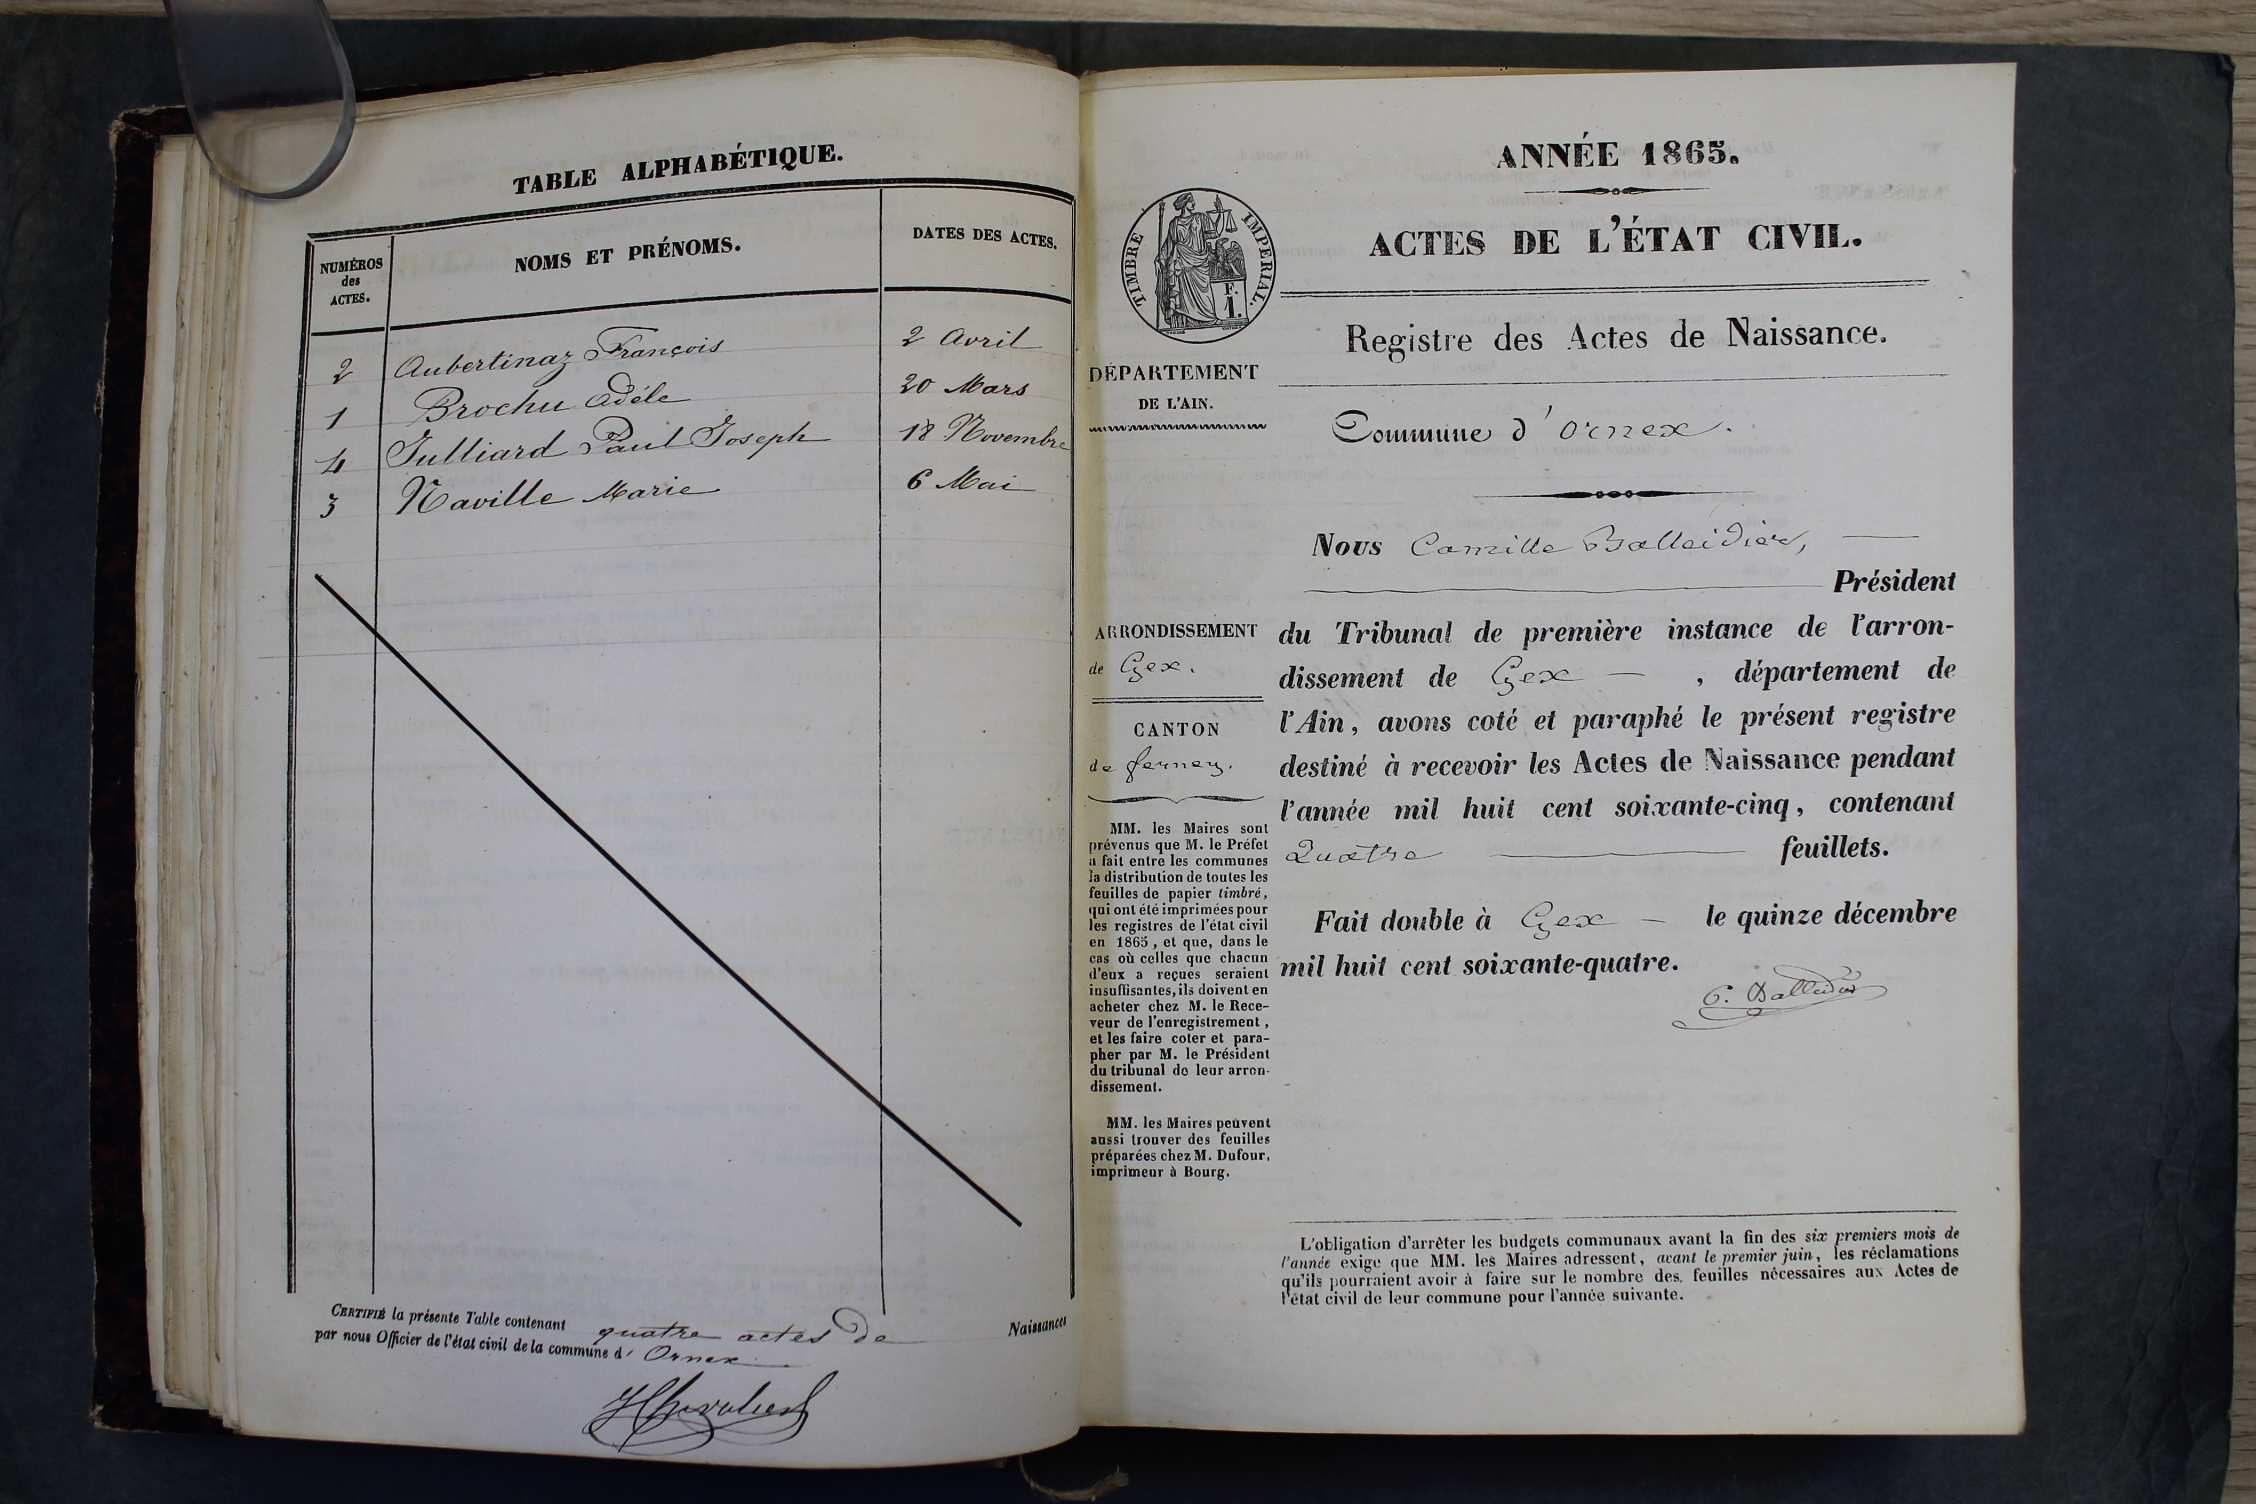 TABLE ALPHABÉTIQUE.
NUMÉROS des ACTES.
NOMS ET PRÉNOMS.
DATES DES ACTES.
2 Aubertinaz François 2 Avril
1 Brochu Adéle 20 Mars
4 Julliard Paul Joseph 18 Novembre
3 Naville Marie 6 Mai
CERTIFIÉ la présente Table contenant quatre actes de Naissances
par nous Officier de l'état civil de la commune d' Ornex
ANNÉE 1865.
ACTES DE L'ÉTAT CIVIL.
TIMBRE IMPERIAL.
F.
1.
Registre des Actes de Naissance.
DÉPARTEMENT
DE L'AIN.
Commune d'Ornex.
ARRONDISSEMENT
de Gex.
CANTON
de ferney.
MM. les Maires sont
prévenus que M. le Préfet
a fait entre les communes
la distribution de toutes les
feuilles de papier timbré,
qui ont été imprimées pour
les registres de l'état civil
en 1865, et que, dans le
cas où celles que chacun
d'eux a reçues seraient
insuffisantes, ils doivent en
acheter chez M. le Rece-
veur de l'enregistrement,
et les faire coter et para-
pher par M. le Président
du tribunal de leur arron-
dissement.
MM. les Maires peuvent
aussi trouver des feuilles
préparées chez M. Dufour,
imprimeur à Bourg.
Nous Camille Balleidier,
Président
du Tribunal de première instance de l'arron-
dissement de Gex, département de
l'Ain, avons coté et paraphé le présent registre
destiné à recevoir les Actes de Naissance pendant
l'année mil huit cent soixante-cinq, contenant
Quatre feuillets.
Fait double à Gex le quinze décembre
mil huit cent soixante-quatre.
L'obligation d'arrêter les budgets communaux avant la fin des six premiers mois de
l'année exige que MM. les Maires adressent, avant le premier juin, les réclamations
qu'ils pourraient avoir à faire sur le nombre des feuilles nécessaires aux Actes de
l'état civil de leur commune pour l'année suivante.